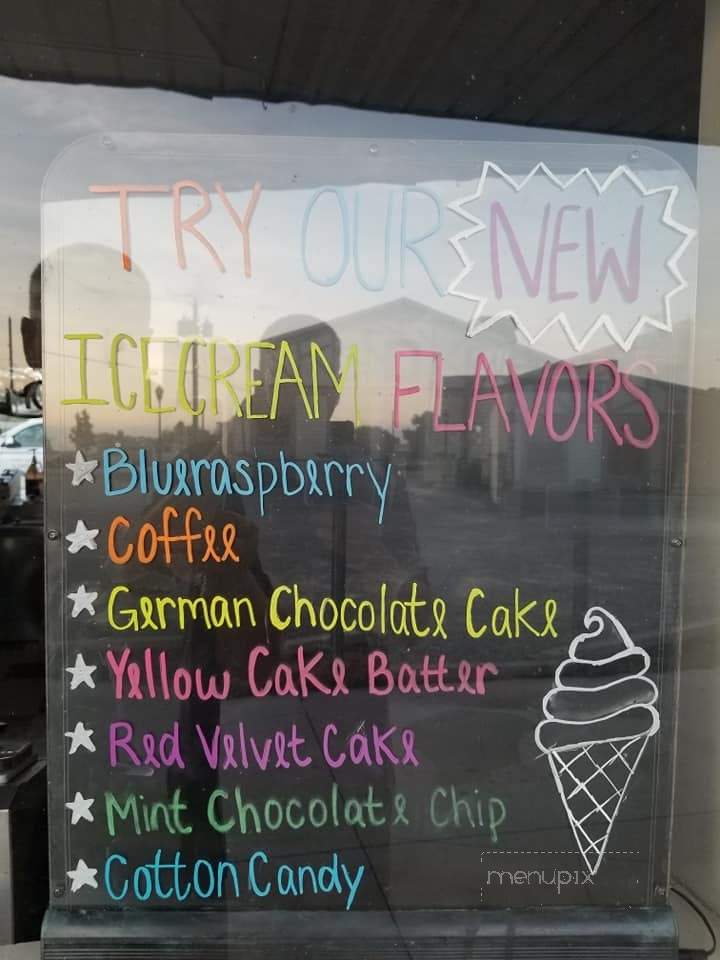 TRY OUR NEW
ICECREAM FLAVORS
Blueraspberry
Coffee
German Chocolate Cake
Yellow Cake Batter
Red Velvet Cake
Mint Chocolate Chip
Cotton Candy
menupix